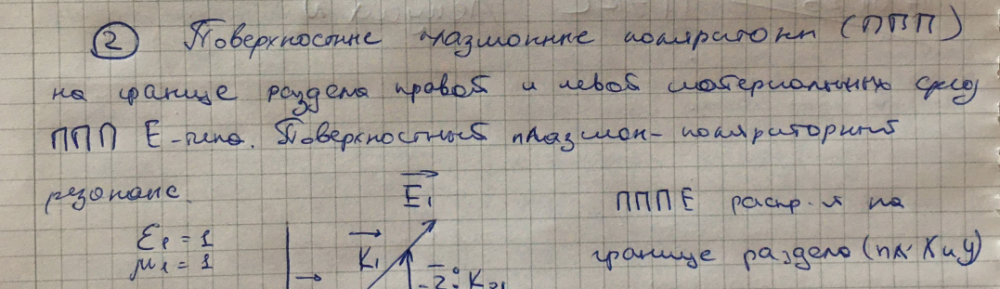 ② Поверхностные плазмонные поляритоны (ППП)
на границе раздела правой и левой материальных сред
ППП Е-типа. Поверхностный плазмон-поляриторный
резонанс.
E₁
ПППЕ распр-я на
ε₁ = 1
K₁
границе раздела (пл. X и y)
μ₁ = 1